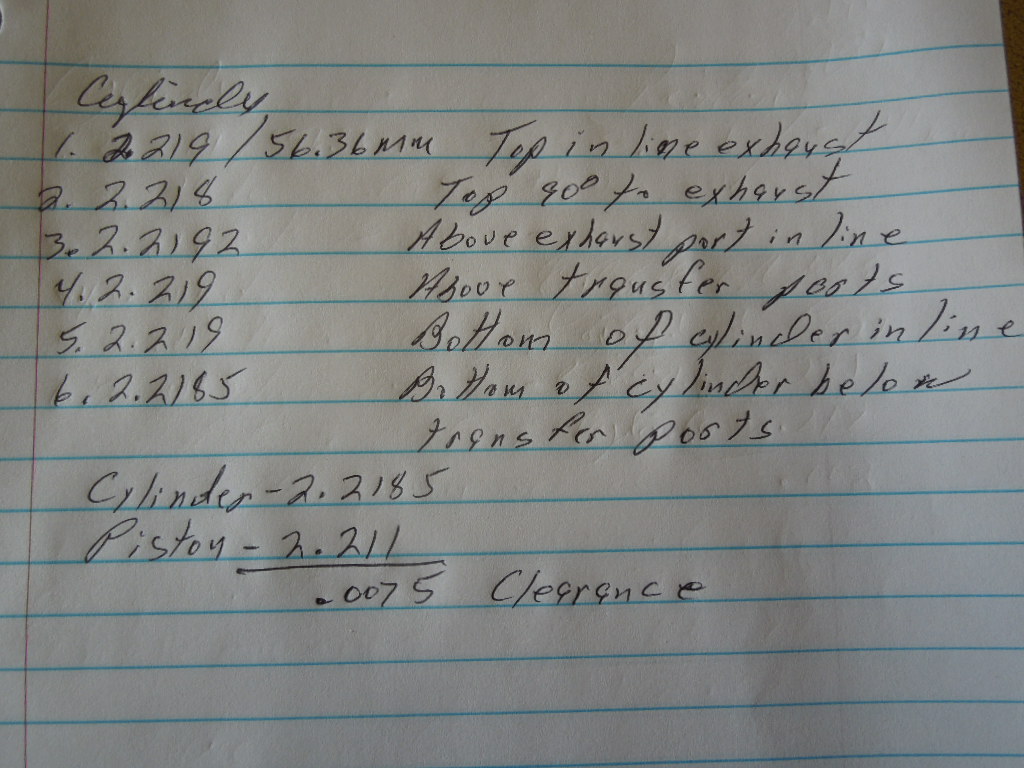 Cylinder
1. 2.219 / 56.36mm Top in line exhaust
2. 2.218 Top 90° to exhaust
3. 2.2192 Above exhaust port in line
4. 2.219 Above transfer ports
5. 2.219 Bottom of cylinder in line
6. 2.2185 Bottom of cylinder below
transfer ports
Cylinder - 2.2185
Piston - 2.211
.0075 Clearance